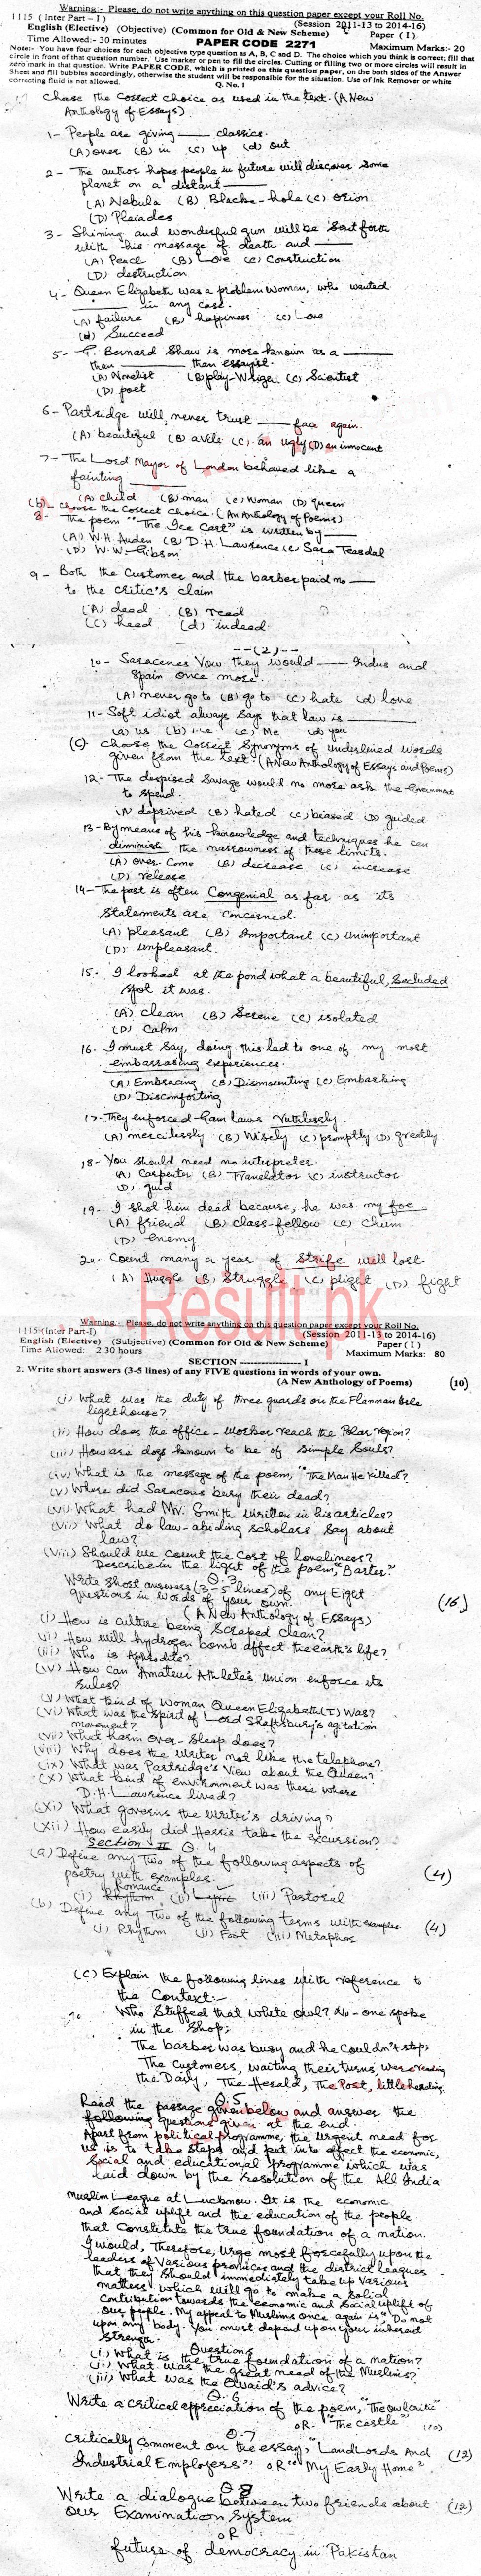 Warning:- Please, do not write anything on this question paper except your Roll No.
1115 (Inter Part – I) (Session 2011-13 to 2014-16)
English (Elective) (Objective) (Common for Old & New Scheme) Paper ( I )
Time Allowed:- 30 minutes PAPER CODE 2271 Maximum Marks:- 20
Note:- You have four choices for each objective type question as A, B, C and D. The choice which you think is correct; fill that
circle in front of that question number. Use marker or pen to fill the circles. Cutting or filling two or more circles will result in
zero mark in that question. Write PAPER CODE, which is printed on this question paper, on the both sides of the Answer
Sheet and fill bubbles accordingly, otherwise the student will be responsible for the situation. Use of Ink Remover or white
correcting fluid is not allowed. Q. No. 1
Choose the Correct choice as used in the text. (A New
Anthology of Essays)
1- People are giving ____ classics.
(A) over (B) in (C) up (d) out
2- The author hopes people in future will discover some
planet on a distant ____
(A) Nebula (B) Blacke-hole (c) orion
(D) Pleiades
3- Shining and wonderful gun will be sent forth
with his message of death and ____
(A) Peace (B) Love (c) Construction
(D) destruction
4- Queen Elizabeth was a problem woman, who wanted
____ in any case.
(A) failure (B) happiness (c) Love
(d) Succeed
5- G. Bernard Shaw is more known as a ____
than ____ than essayist.
(A) Novelist (B) play-Wriger (c) Scientist
(D) poet
6- Partridge will never trust ____ face again.
(A) beautiful (B) a vile (c) an ugly (D) an innocent
7- The Lord Mayor of London behaved like a
fainting ____
(A) child (B) man (c) Woman (D) queen
(b)- choose the Correct choice. (An Anthology of Poems)
8- The poem "The Ice Cart" is written by ____
(A) W.H. Auden (B) D.H. Lawrence (c) Sara Teasdal
(D) W.W. Gibson
9- Both the Customer and the barber paid no ____
to the critic's claim
(A) dead (B) reed
(C) heed (d) indeed
--(2)--
10- Saracenes Vow they would ____ Indus and
Spain once more.
(A) never go to (B) go to (c) hate (d) love
11- Soft idiot always says that law is ____
(a) us (b) (c) Me (d) you
(C). choose the Correct Synonyms of underlined words
given from the text. (A New Anthology of Essays and Poems)
12- The despised Savage would no more ask the Government
to spend.
(A) deprived (B) hated (c) biased (D) guided
13- By means of his knowledge and techniques he can
diminish the narrowness of these limits.
(A) over come (B) decrease (c) increase
(D) release
14- The past is often Congenial as far as its
statements are concerned.
(A) pleasant (B) Important (c) unimportant
(D) unpleasant
15. I looked at the pond what a beautiful, Secluded
spot it was.
(A) clean (B) Serene (c) isolated
(D) Calm
16. I must say, doing this led to one of my most
embarrassing experiences.
(A) Embracing (B) Dismounting (c) Embarking
(D) Discomforting
17- They enforced Gain laws ruthlessly.
(A) mercilessly (B) Wisely (c) promptly (D) greatly
18- You should need no interpreter.
(A) Carpenter (B) Translator (c) instructor
(D) guid
19- I shot him dead because, he was my foe
(A) friend (B) class-fellow (c) Chum
(D) enemy
20. Count many a year of Strife will lost.
(A) Huggle (B) Struggle (c) plight (D) fight
Result.pk
Warning:- Please, do not write anything on this question paper except your Roll No.
1115 (Inter Part-I) (Session 2011-13 to 2014-16)
English (Elective) (Subjective) (Common for Old & New Scheme) Paper ( I )
Time Allowed: 2.30 hours Maximum Marks: 80
SECTION ---------------- I
2. Write short answers (3-5 lines) of any FIVE questions in words of your own.
(A New Anthology of Poems) (10)
(i) What was the duty of three guards on the Flannan Isle
lighthouse?
(ii) How does the office-worker reach the Polar region?
(iii) How are dogs known to be of Simple Souls?
(iv) What is the message of the poem, "The Man He Killed"?
(v) Where did Saracens bury their dead?
(vi) What had Mr. Smith written in his articles?
(vii) What do law-abiding scholars say about
law?
(viii) Should we count the Cost of loneliness?
Describe in the light of the poem, "Barter."
Q. 3.
Write Short answers (3-5 lines) of any Eight (16)
questions in words of your own.
(A New Anthology of Essays)
(i) How is culture being Scraped clean?
(ii) How will hydrogen bomb affect the earth's life?
(iii) Who is Aphrodite?
(iv) How can Amateur Athletes Union enforce its
rules?
(v) What kind of Woman Queen Elizabeth (I) was?
(vi) What was the spirit of Lord Shaftsbury's agitation
movement?
(vii) What harm over-sleep does?
(viii) Why does the writer not like the telephone?
(ix) What was Partridge's View about the Queen?
(x) What kind of environment was there where
D.H. Lawrence lived?
(xi) What governs the writer's driving?
(xii) How easily did Harris take the excursion?
Section II Q. 4
(a) Define any Two of the following aspects of (4)
poetry with examples.
(i) Rhythm Romance (ii) Lyric (iii) Pastoral
(b) Define any Two of the following terms with examples. (4)
(i) Rhythm (ii) Foot (iii) Metaphor
(C) Explain the following lines with reference to
the Context:-
Who Stuffed that white owl? No-one spoke
in the Shop;
The barber was busy and he couldn't stop;
The Customers, waiting their turns, were reading
the Daily, The Herald, The Post, little heeding
Q. 5
Read the passage given below and answer the
following questions given at the end.
Apart from political programme, the urgent need for
us is to take steps and put into effect the economic,
Social and educational programme which was
laid down by the resolution of the All India
Muslim League at Lucknow. It is the economic
and Social uplift and the education of the people
that constitute the true foundation of a nation.
I would, Therefore, urge most forcefully upon the
leaders of Various provinces and the district leagues
that they Should immediately take up Various
matters which will go to make a Solid
Contribution towards the economic and Social uplift of
our people. My appeal to Muslims once again is, "Do not
upon any body. You must depend upon your inherent
Strength.
Questions
(i) What is the true foundation of a nation?
(ii) What was the great need of the Muslims?
(iii) What was the Quaid's advice?
Q. 6
Write a critical appreciation of the poem, "The owl critic"
OR "The Castle" (10)
Q. 7
Critically comment on the essay, "Land Lords And (12)
Industrial Employers" OR "My Early Home".
Q 8
Write a dialogue between two friends about (12)
our Examination System
OR
future of democracy in Pakistan